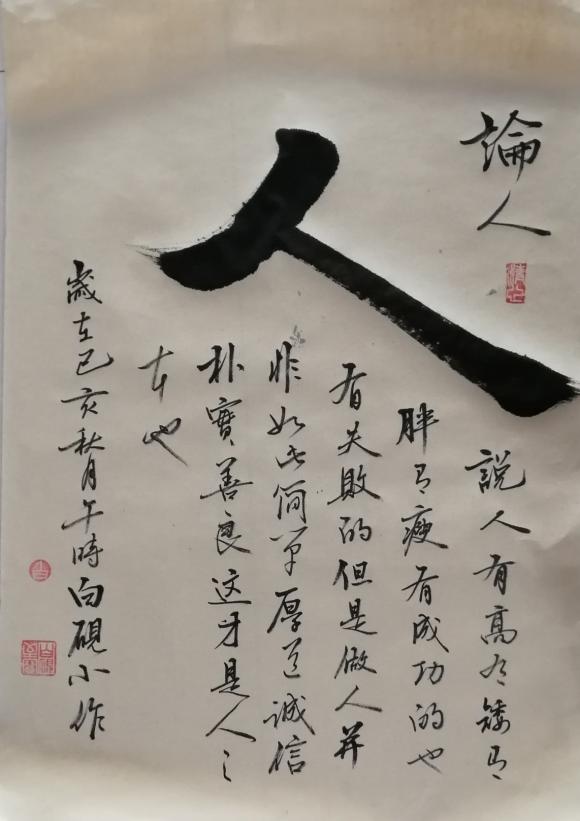 論人
人
說人有高有矮有
胖有瘦有成功的也
有失敗的但是做人并
非如此简单厚道誠信
朴實善良这才是人之
本也
歲在己亥秋月午時白硯小作